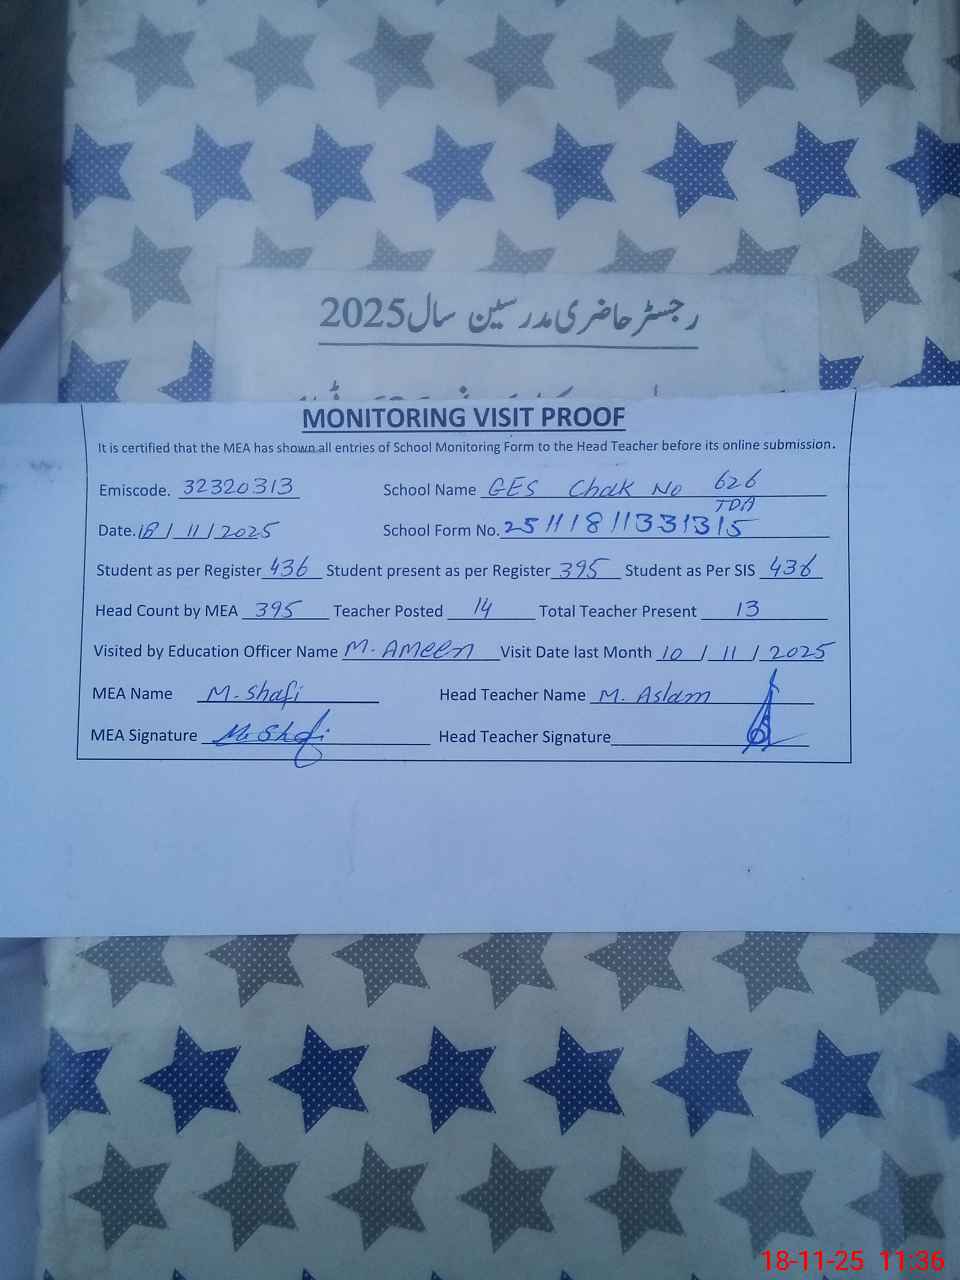 رجسٹر حاضری مدرسین سال 2025
MONITORING VISIT PROOF
It is certified that the MEA has shown all entries of School Monitoring Form to the Head Teacher before its online submission.
Emiscode. 32320313 School Name GES Chak No 626
TDA
Date. 18 / 11 / 2025 School Form No. 25111811331315
Student as per Register 436 Student present as per Register 395 Student as Per SIS 436
Head Count by MEA 395 Teacher Posted 14 Total Teacher Present 13
Visited by Education Officer Name M. Ameen Visit Date last Month 10 / 11 / 2025
MEA Name M. Shafi Head Teacher Name M. Aslam
MEA Signature M. Shafi Head Teacher Signature
18-11-25 11:36